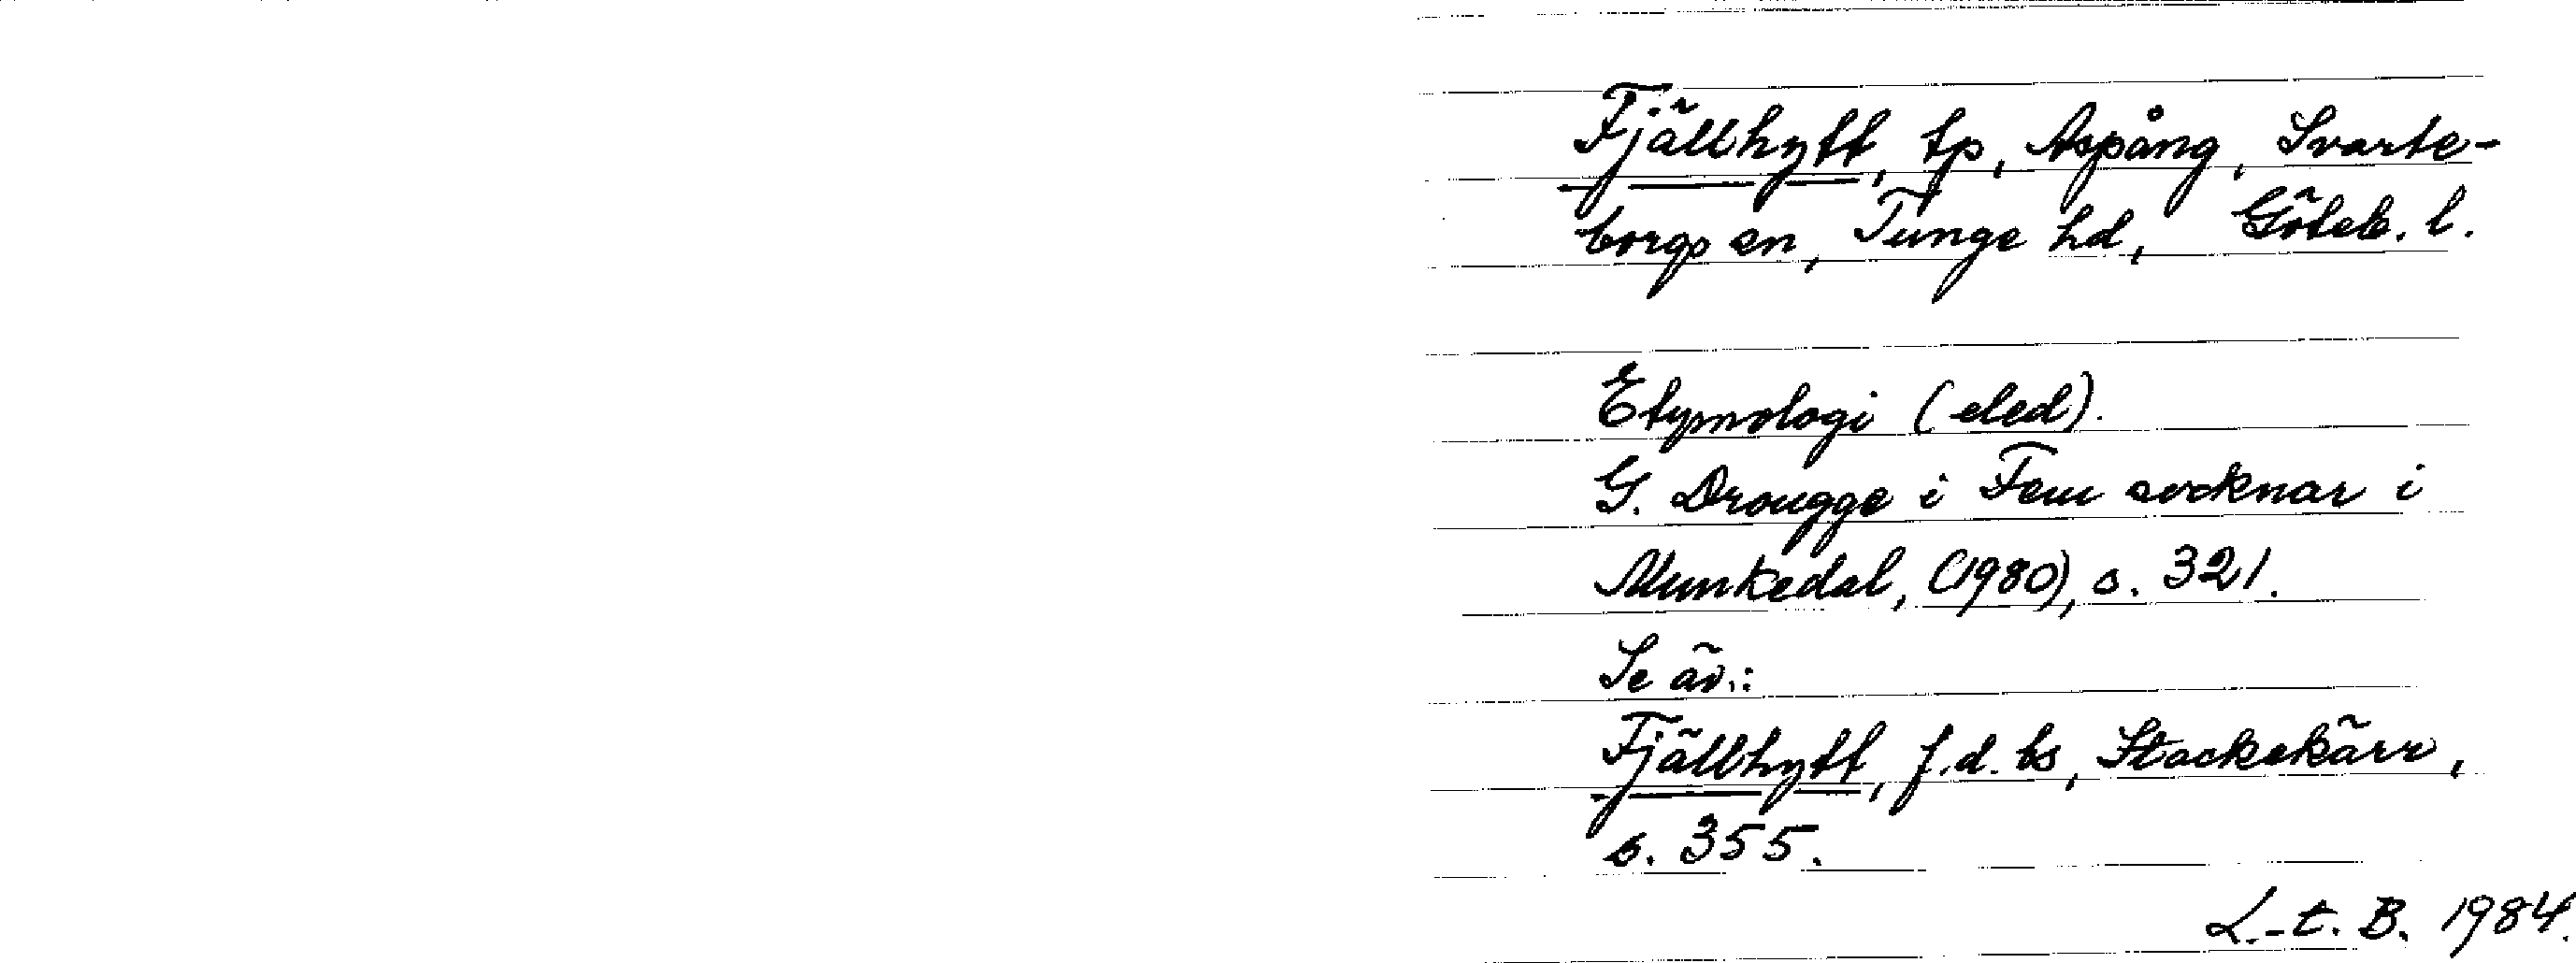 Fjällhytt, tp, Aspång, Svarte-
borgs sn, Tunge hd, Göteb. l.
Etymologi (eled).
G. Drougge i Fem socknar i
Munkedal, (1980), s. 321.
Se äv.:
Fjällhytt, f.d. bs, Stackekärr,
s. 355.
L.-t. B. 1984.